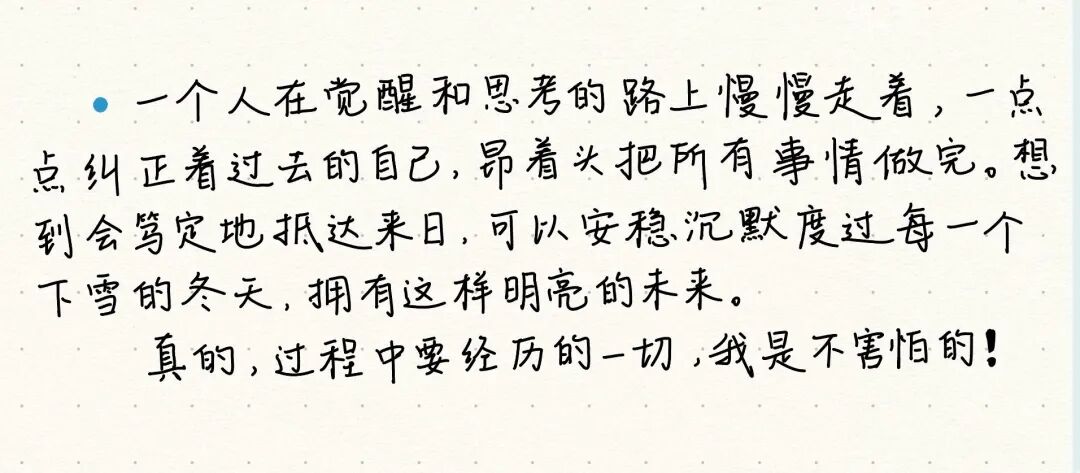 • 一个人在觉醒和思考的路上慢慢走着,一点
点纠正着过去的自己,昂着头把所有事情做完。想
到会笃定地抵达来日,可以安稳沉默度过每一个
下雪的冬天,拥有这样明亮的未来。
真的,过程中要经历的一切,我是不害怕的!